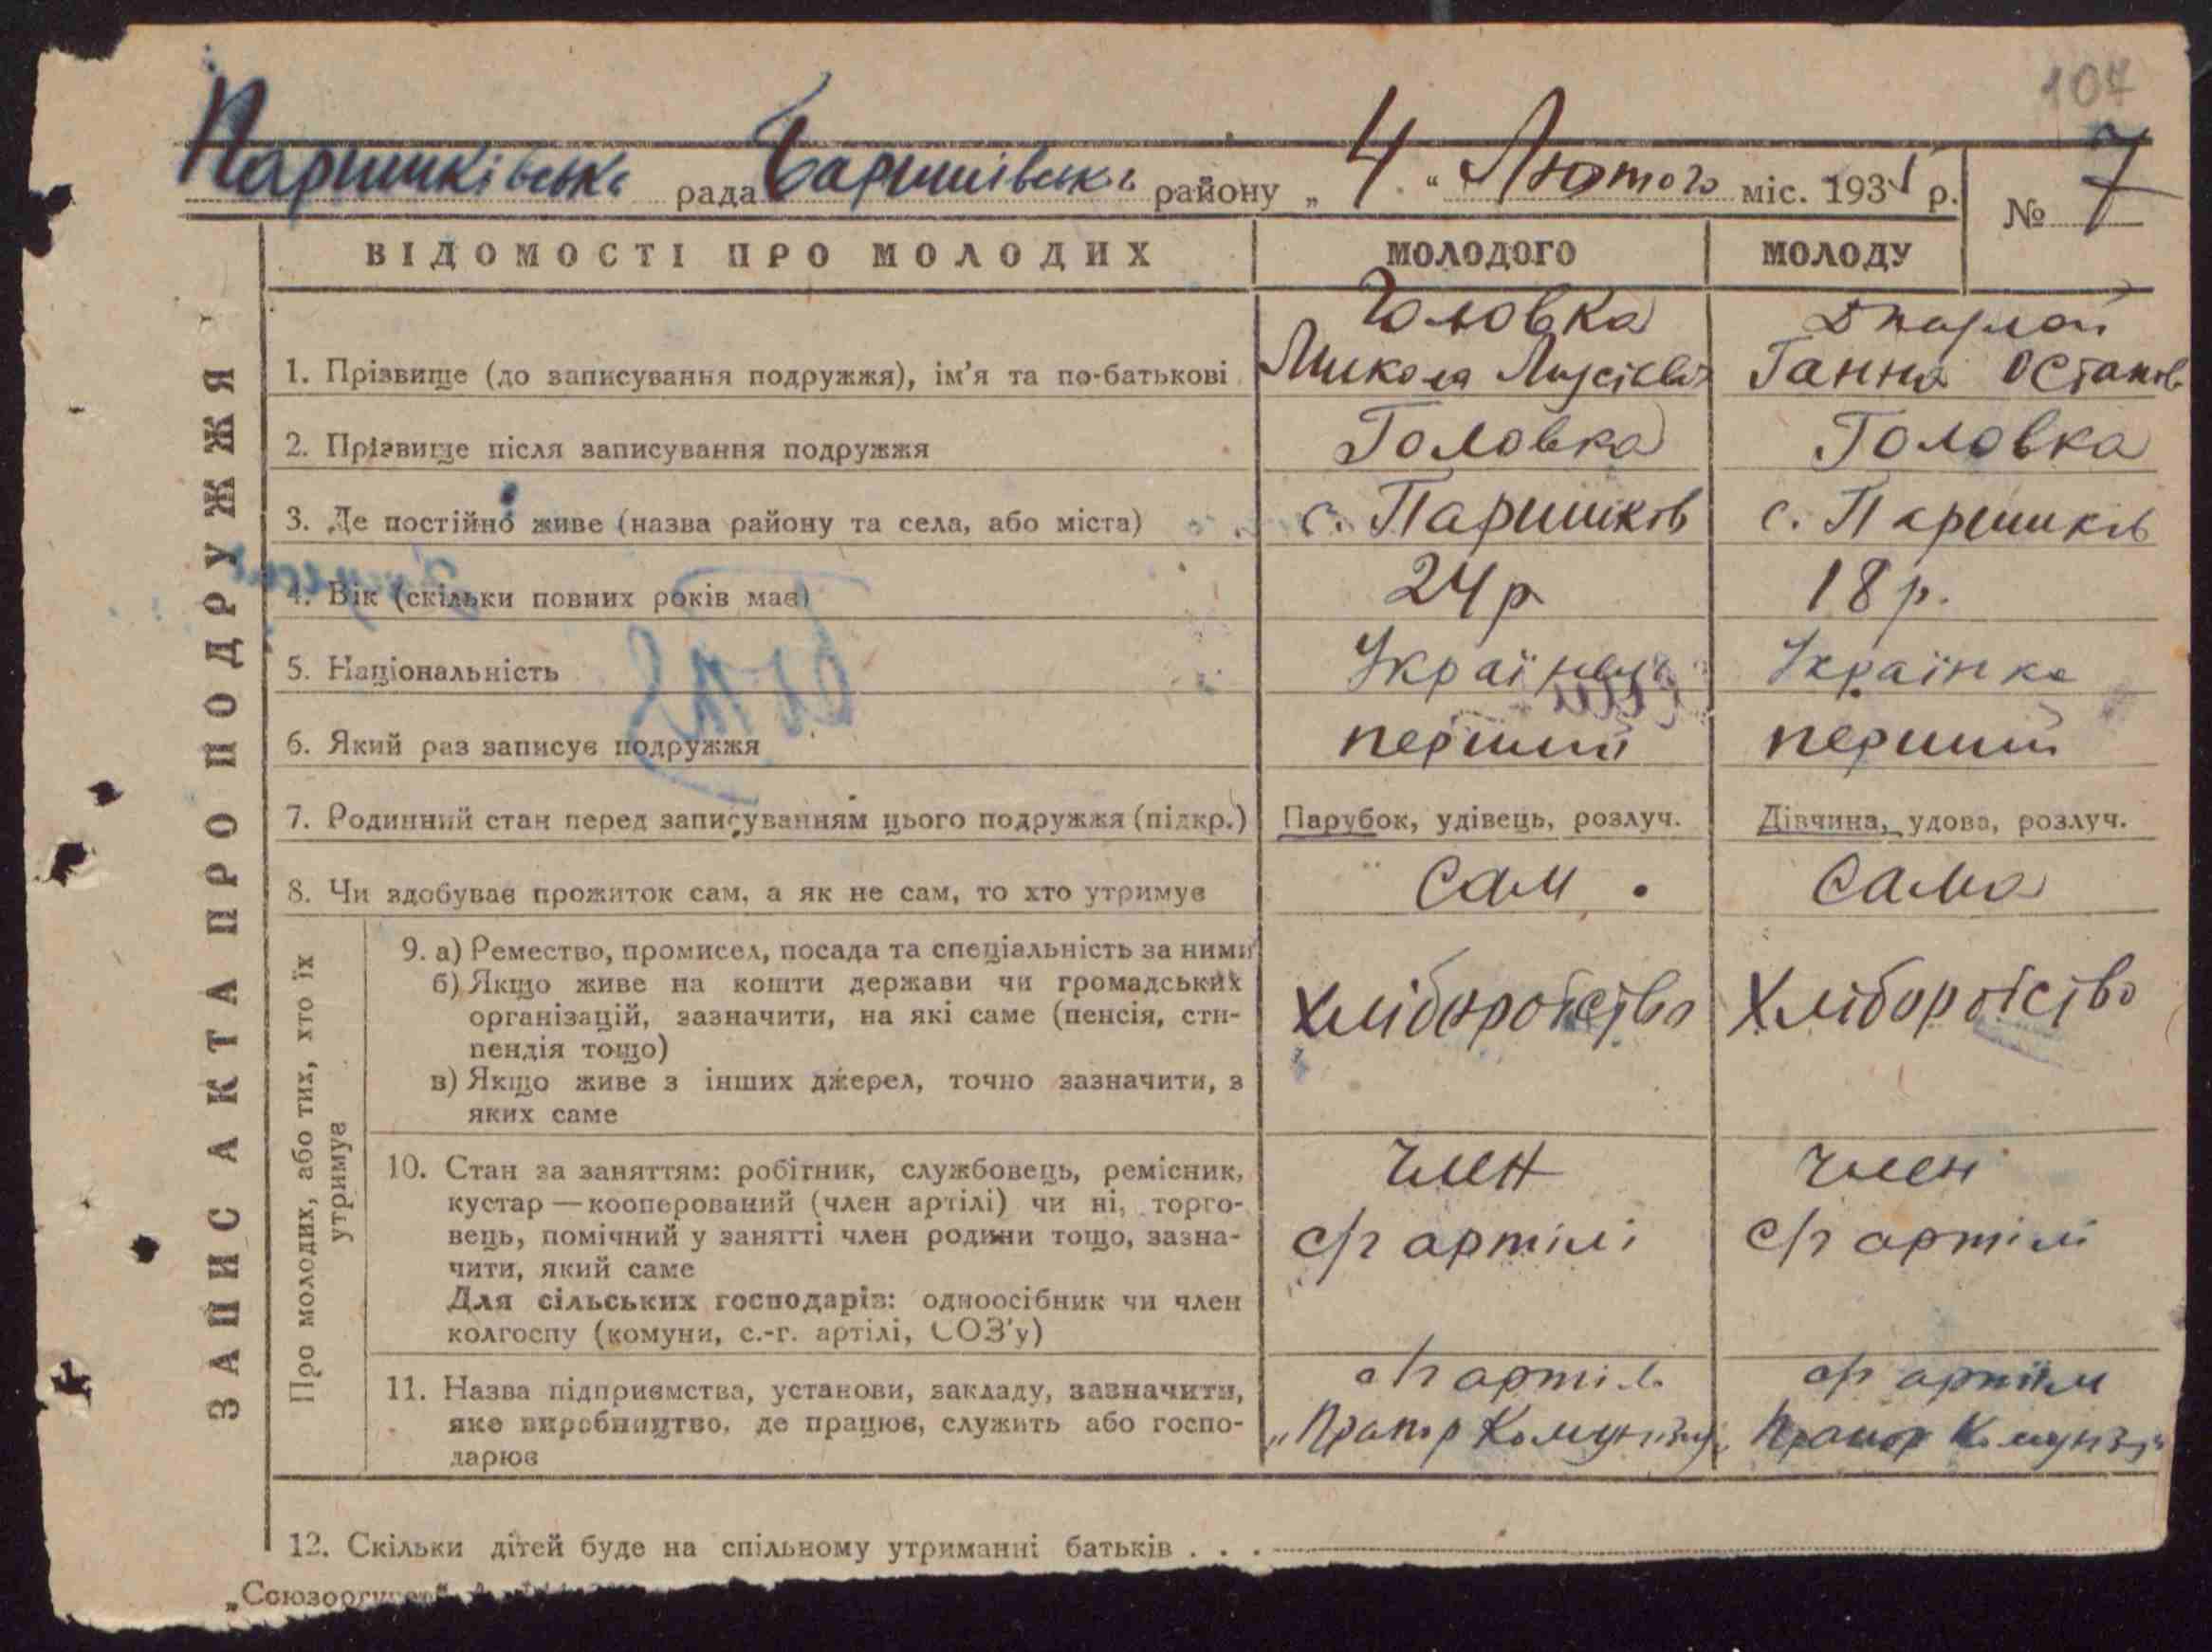 107
Паришківська рада Баришівська району „ 4 “ Лютого міс. 193 р. № 7
ЗАПИС АКТА ПРО ПОДРУЖЖЯ
ВІДОМОСТІ ПРО МОЛОДИХ МОЛОДОГО МОЛОДУ
Головка
1. Прізвище (до записування подружжя), ім’я та по-батькові Микола Ганна Остапов
2. Прізвище після записування подружжя Головка Головка
3. Де постійно живе (назва району та села, або міста) с. Паришків с. Паришків
4. Вік (скільки повних років має) 24 р 18 р.
5. Національність Українець Українка
6. Який раз записує подружжя перший перший
7. Родинний стан перед записуванням цього подружжя (підкр.) Парубок, удівець, розлуч. Дівчина, удова, розлуч.
8. Чи здобуває прожиток сам, а як не сам, то хто утримує сам . сама
Про молодих, або тих, хто їх
утримує
9. а) Ремество, промисел, посада та спеціальність за ними
б) Якщо живе на кошти держави чи громадських
організацій, зазначити, на які саме (пенсія, сти-
пендія тощо)
в) Якщо живе з інших джерел, точно зазначити, з
яких саме
Хліборобство Хліборобство
10. Стан за заняттям: робітник, службовець, ремісник,
кустар — кооперований (член артілі) чи ні, торго-
вець, помічний у занятті член родини тощо, зазна-
чити, який саме
Для сільських господарів: одноосібник чи член
колгоспу (комуни, с.-г. артілі, СОЗ’у)
член член
с/г артілі с/г артілі
11. Назва підприємства, установи, закладу, зазначити,
яке виробництво, де працює, служить або госпо-
дарює
с/г артіль с/г артіль
„Прапор Комунізму“ Прапор Комунізму
12. Скільки дітей буде на спільному утриманні батьків . . .